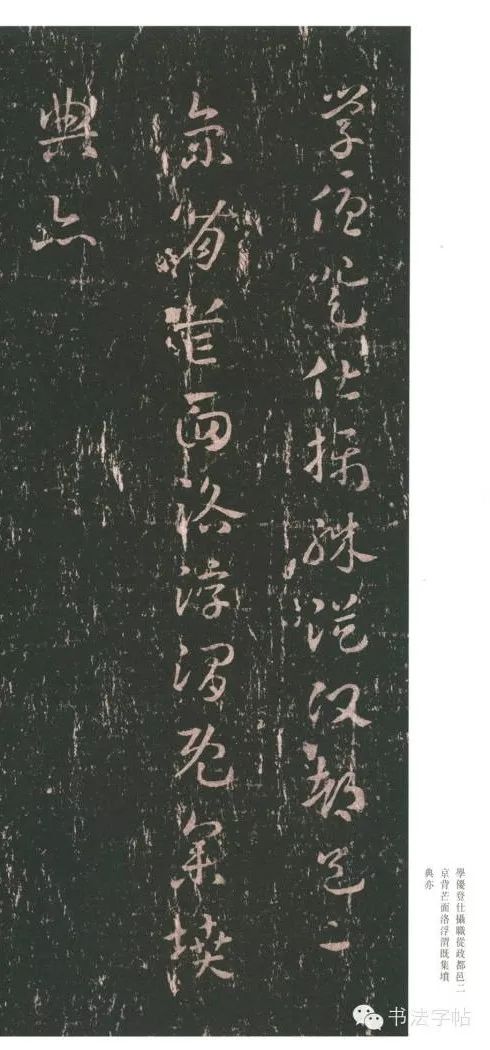 學優登仕攝職從政都邑二
京背芒面洛浮渭既集墳
典亦
學優登仕攝職從政都邑二
京背芒面洛浮渭既集墳
典亦
书法字帖